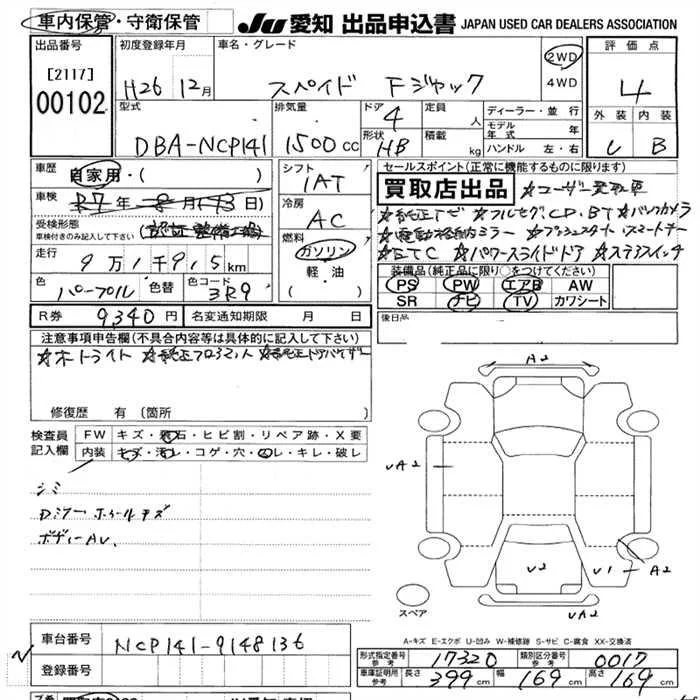 車内保管・守衛保管
JU 愛知 出品申込書 JAPAN USED CAR DEALERS ASSOCIATION
出品番号 [2117] 00102
初度登録年月 H26年 12月
車名・グレード スペイド Fジャック
2WD 4WD
評価点 4
外装 内装 B
型式 DBA-NCP141
排気量 1500 cc
ドア 4
形状 HB
定員 人
積載 kg
ディーラー・並行
モデル年式 年
ハンドル 左・右
車歴 自家用・( )
車検 R7年 8月( 日)
受検形態 車検付きのみ記入して下さい (認証整備工場)
走行 9万1千915km
色 パープル 色替 色コード 3R9
シフト 1AT
冷房 AC
燃料 ガソリン 軽油 ( )
セールスポイント(正常に機能するものに限ります)
買取店出品 ☆ユーザー買取車
☆純正TV ☆フルセグCD・BT ☆バックカメラ
☆電動格納ミラー ☆プッシュスタート・スマートキー
☆ETC ☆パワースライドドア ☆ステアスイッチ
装備品(純正品に限り○をつけてください)
PS PW エアB AW
SR ナビ TV カワシート
R券 9340円 名変通知期限 月 日
後日品
注意事項申告欄(不具合内容等は具体的に記入して下さい)
☆オートライト ☆純正フロアマット ☆純正ドアバイザー
修復歴 有 (箇所
検査員記入欄 FW キズ・飛石・ヒビ割・リペア跡・X要
内装 キズ・汚レ・コゲ・穴・スレ・キレ・破レ
シミ
ホイールキズ
ボディーAU.
A2
UA2
U2 U1 A2
UA2
スペア
A-キズ E-エクボ U-凹み W-補修跡 S-サビ C-腐食 XX-交換済
車台番号 NCP141-9148136
登録番号
形式指定番号 参考 17320 類別区分番号 参考 0017
車庫証明用 参考 長さ 399cm 幅 169cm 高さ 169cm